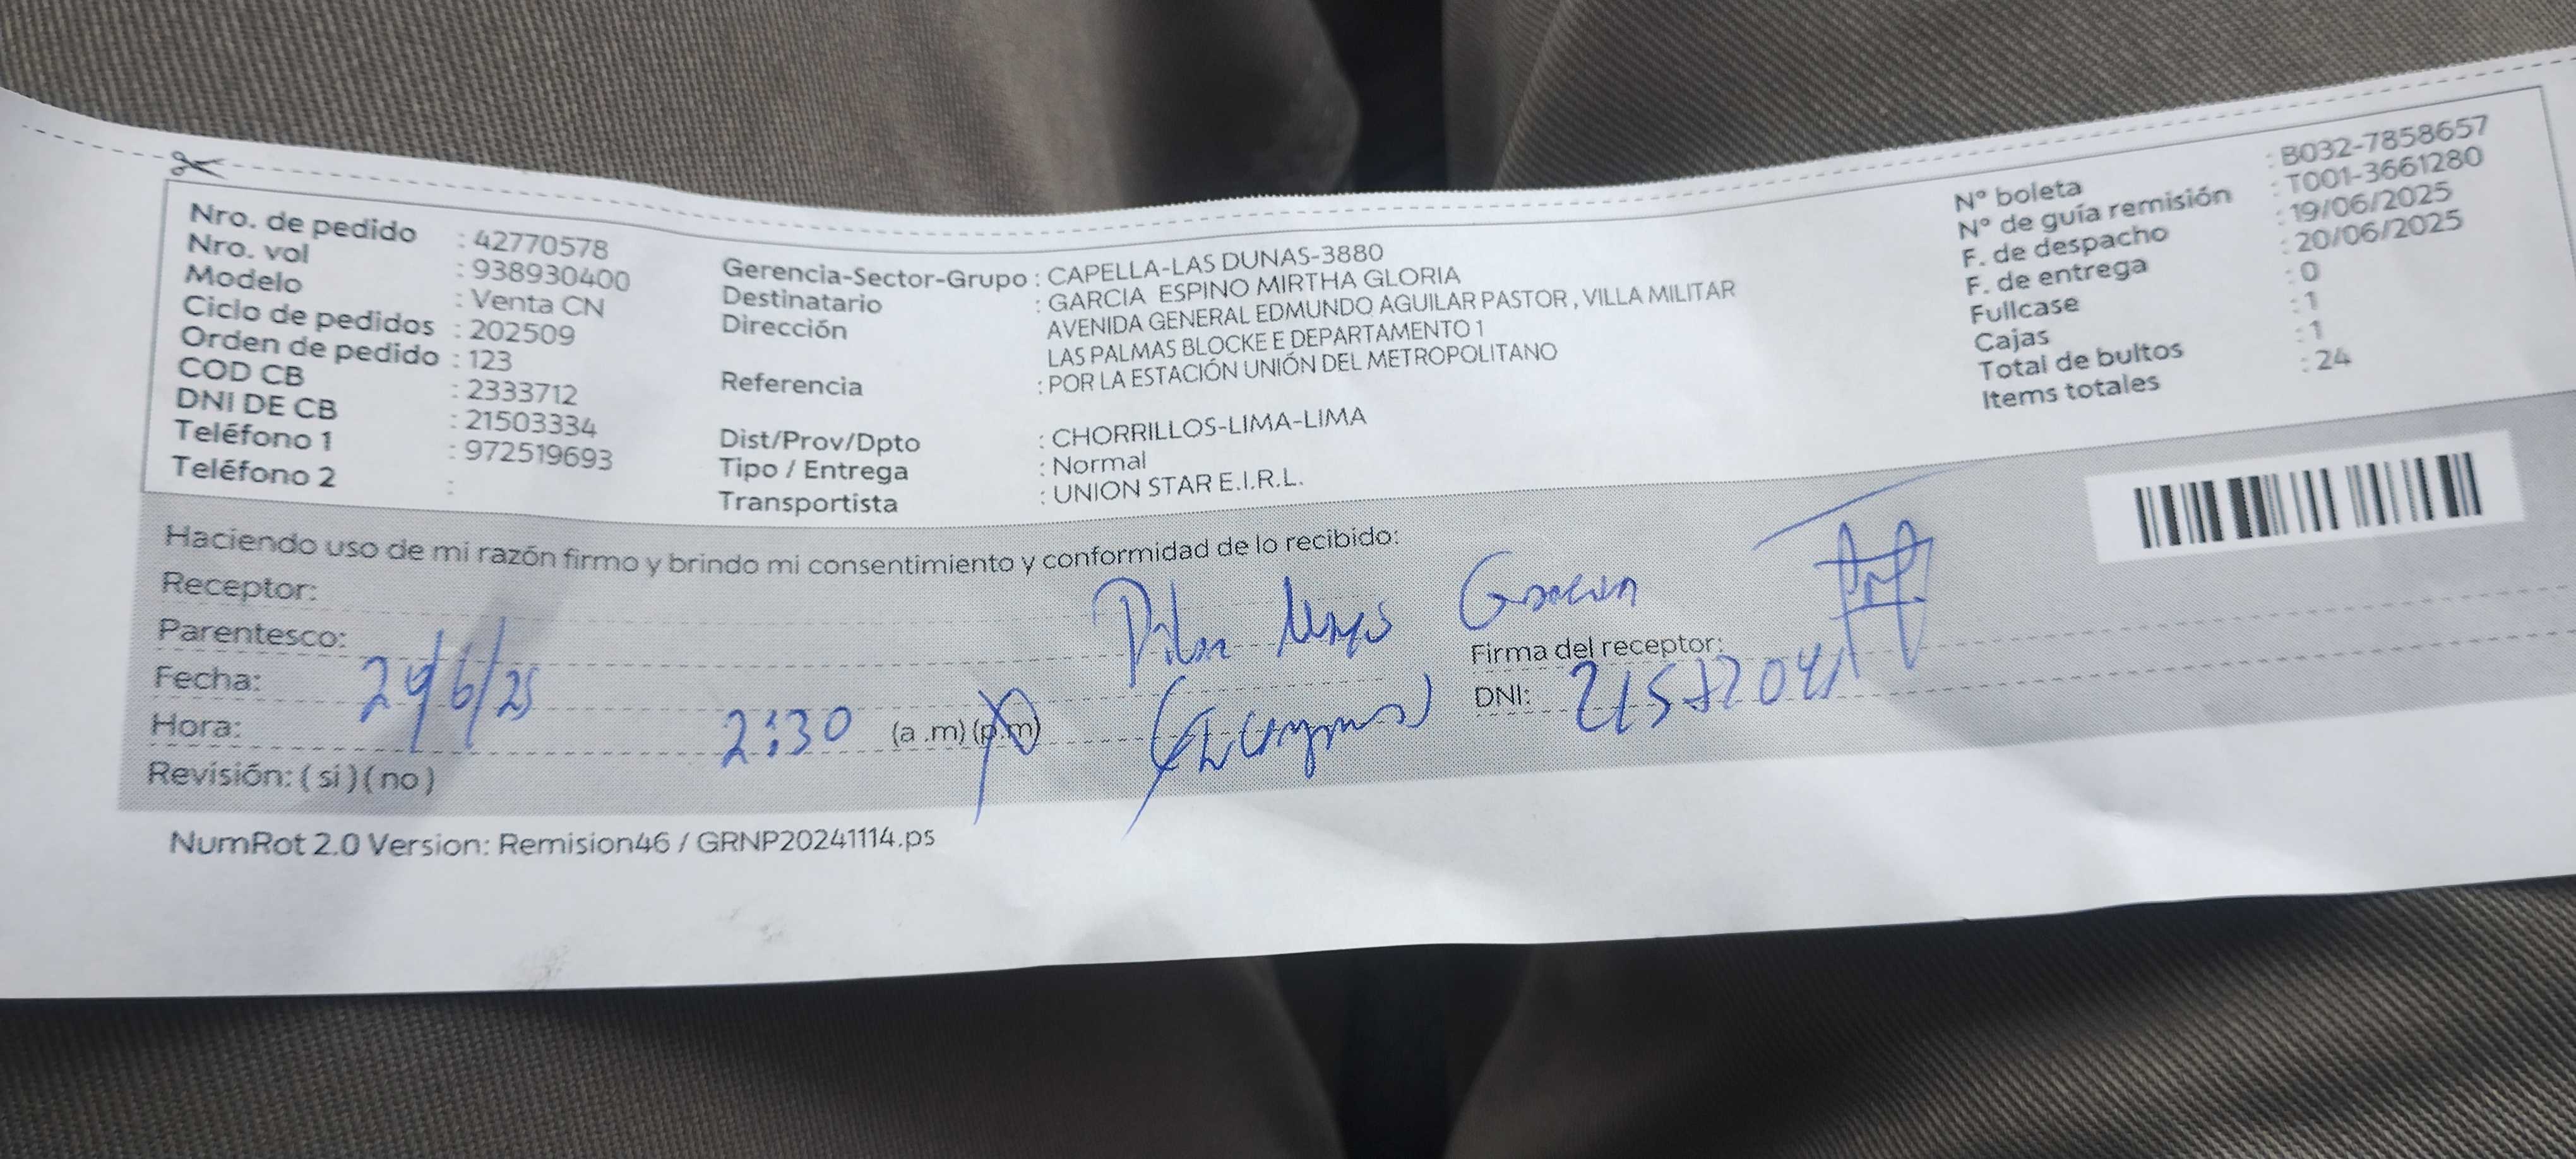 Nro. de pedido : 42770578
Nro. vol : 938930400
Modelo : Venta CN
Ciclo de pedidos : 202509
Orden de pedido : 123
COD CB : 2333712
DNI DE CB : 21503334
Teléfono 1 : 972519693
Teléfono 2 :
Gerencia-Sector-Grupo : CAPELLA-LAS DUNAS-3880
Destinatario : GARCIA ESPINO MIRTHA GLORIA
Dirección AVENIDA GENERAL EDMUNDO AGUILAR PASTOR , VILLA MILITAR
LAS PALMAS BLOCKE E DEPARTAMENTO 1
Referencia : POR LA ESTACIÓN UNIÓN DEL METROPOLITANO
Dist/Prov/Dpto : CHORRILLOS-LIMA-LIMA
Tipo / Entrega : Normal
Transportista : UNION STAR E.I.R.L.
N° boleta : B032-7858657
N° de guía remisión : T001-3661280
F. de despacho : 19/06/2025
F. de entrega : 20/06/2025
Fullcase : 0
Cajas : 1
Total de bultos : 1
Items totales : 24
Haciendo uso de mi razón firmo y brindo mi consentimiento y conformidad de lo recibido:
Receptor: Pilar
Parentesco:
Firma del receptor:
Fecha:
DNI:
Hora: 2:30 (a .m) (p.m)
Revisión: ( si ) ( no )
NumRot 2.0 Version: Remision46 / GRNP20241114.ps